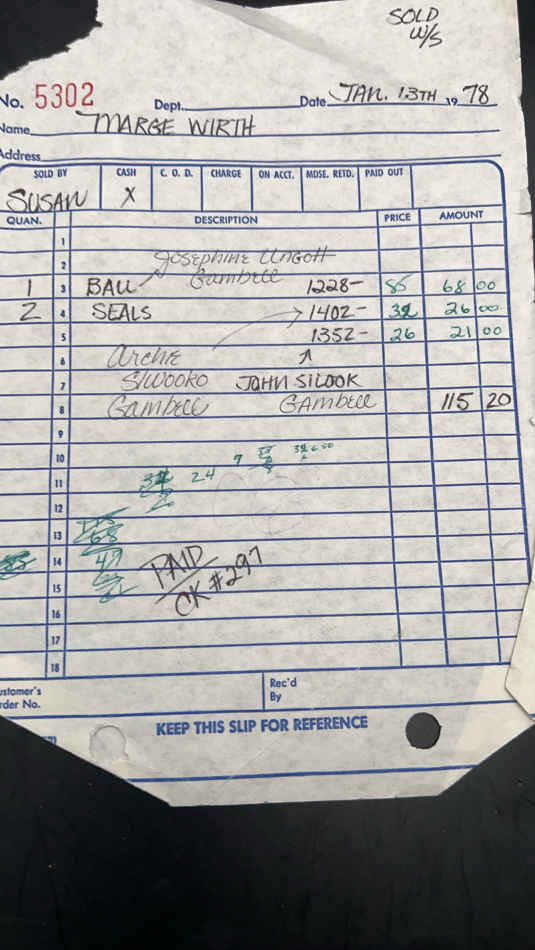 SOLD
W/S
No. 5302 Dept. Date JAN. 13TH 19 78
Name MARGE WIRTH
Address
SOLD BY CASH C. O. D. CHARGE ON ACCT. MDSE. RETD. PAID OUT
SUSAN X
QUAN. DESCRIPTION PRICE AMOUNT
1
2 Josephine Ungott
Gambell
1 3 BALL 1228- 85 68 00
2 4 SEALS 1402- 32 26 00
5 1352- 26 21 00
6 Archie
7 Slwooko JOHN SILOOK
8 Gambell GAMBELL 115 20
9
10
11 24
12
13 68
14 47 PAID
15 CK #297
16
17
18
ustomer's
rder No. Rec'd
By
KEEP THIS SLIP FOR REFERENCE